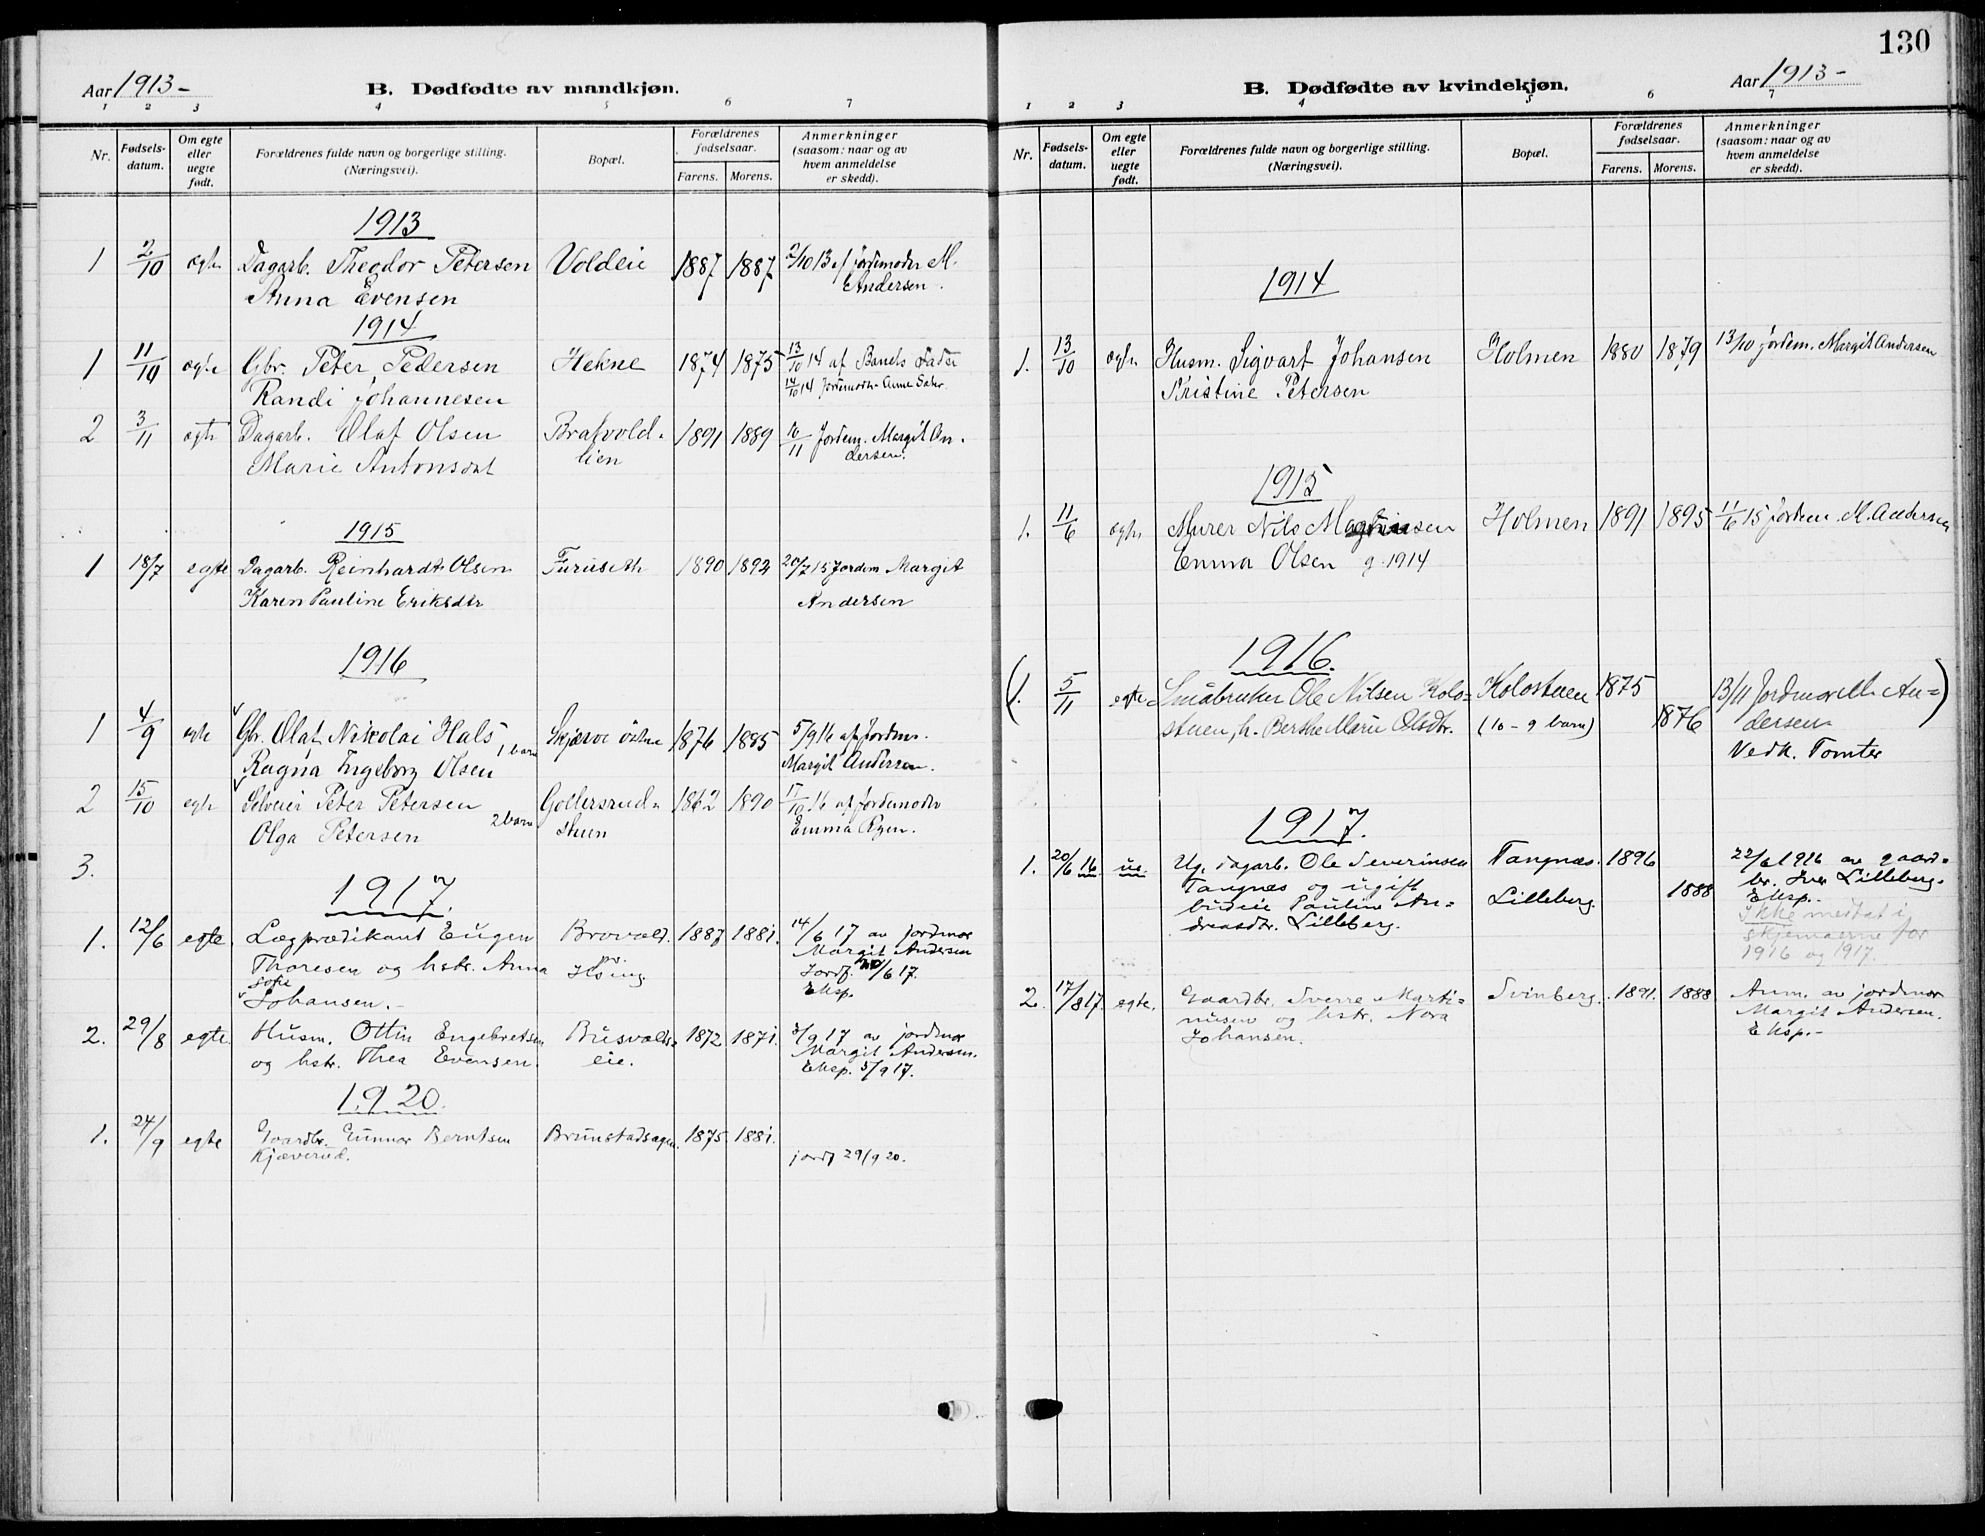 Aar 1913-
B. Dødfødte av mandkjøn.
1 2 3 4 5 6 7
Nr. Fødsels-datum. Om egte eller uegte født. Forældrenes fulde navn og borgerlige stilling. (Næringsvei). Bopæl. Forældrenes fødselsaar. Farens. Morens. Anmerkninger (saasom: naar og av hvem anmeldelse er skedd).
1913
1 2/10 ægte Dagarb. Theodor Petersen Voldeie 1887 1887 2/10 13 af jordemoder M.
Anna Evensen Andersen.
1914
1 11/10 ægte Gbr. Peter Pedersen Hekne 1874 1875 13/10 14 af Barnets Fader
Randi Johannesen 14/10 14 Jordemoder Anne
2 3/11 ægte Dagarb. Olaf Olsen Bratvold- 1891 1889 10/11 Jordem. Margit An-
Marie Antonsdat lien dersen.
1915
1 18/7 egte Dagarb. Reinhardt Olsen Furuseth 1890 1892 20/7 15 Jordem Margit
Karen Pauline Eriksdtr Andersen
1916
1 4/9 egte Gbr. Olaf Nikolai Hals Skjærve østre 1876 1885 5/9 16 af Jordem.
1 barn
Ragna Ingeborg Olsen Margit Andersen.
2 15/10 egte Selveier Peter Petersen Gollersrud- 1862 1890 17/10 16 af Jordemoder
2 barn
Olga Petersen stuen Emma Ryen.
3.
1917.
1. 12/6 egte Lægprædikant Eugen Brovold. 1887 1881. 14/6 17 av jordmor
Thoresen og hstr. Anna Margit Andersen
Sofie Jordf. 20/6 17.
Johansen.- Eksp.
2. 29/8 egte. Husm. Ottin Engebretsen Busvolds- 1872 1871. 3/9 17 av jordmor
og hstr. Thea Evensen. eie. Margit Andersen.
Eksp. 5/9 17.
1920.
1. 24/9 egte Gaardbr. Gunnar Berntsen Brunstadsagen. 1875 1881.
Kjæverud. jordf 29/9 20.
130
B. Dødfødte av kvindekjøn.
Aar 1913-
1 2 3 4 5 6 7
Nr. Fødsels-datum. Om egte eller uegte født. Forældrenes fulde navn og borgerlige stilling. (Næringsvei). Bopæl. Forældrenes fødselsaar. Farens. Morens. Anmerkninger (saasom: naar og av hvem anmeldelse er skedd).
1914
1. 13/10 ægte Husm. Sigvart Johansen Holmen 1880 1879 13/10 jordem. Margit Andersen
Kristine Petersen
1915
1. 11/6 ægte Murer Nils Magnussen Holmen 1891 1895 11/6 15 Jordem. M. Andersen
Emma Olsen g. 1914
1916.
(1. 5/11 egte Småbruker Ole Nilsen Kolo- Kolostuen 1875 1876 13/11 Jordmor M. An-)
stuen, h. Berthe Marie Olsdtr. (10 - 9 barn) dersen
Vedk. Tomter
1917.
1. 20/6 16 ue. Ug. dagarb. Ole Severinsen Tangnæs. 1896 22/6 1916 av gaard-
Tangnes og ugift Lilleberg. 1888 br. Iver Lilleberg.
budeie Pauline An- Eksp.-
dreasdtr. Lilleberg. Ikke medtat i
skjemaerne for
1916 og 1917.
2. 17/8 17. egte. Gaardbr. Sverre Marti- Svinberg. 1891. 1888 Anm. av jordmor
nusen og hstr. Nora Margit Andersen.
Johansen. Eksp.-